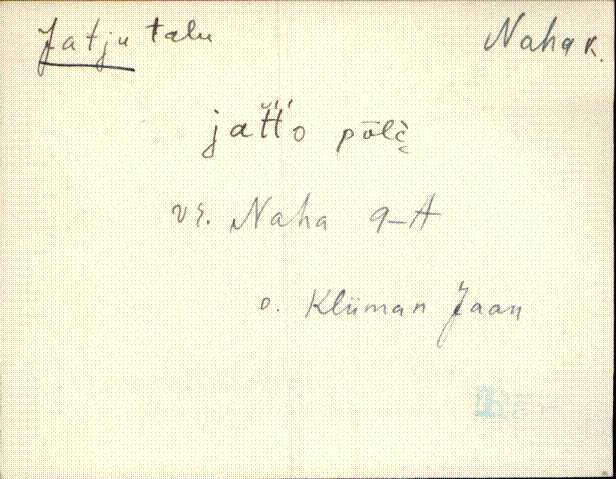 Jatju talu Naha k.
jat́t́o pōlè̬
vr. Naha 9-A
o. Kliiman Jaan